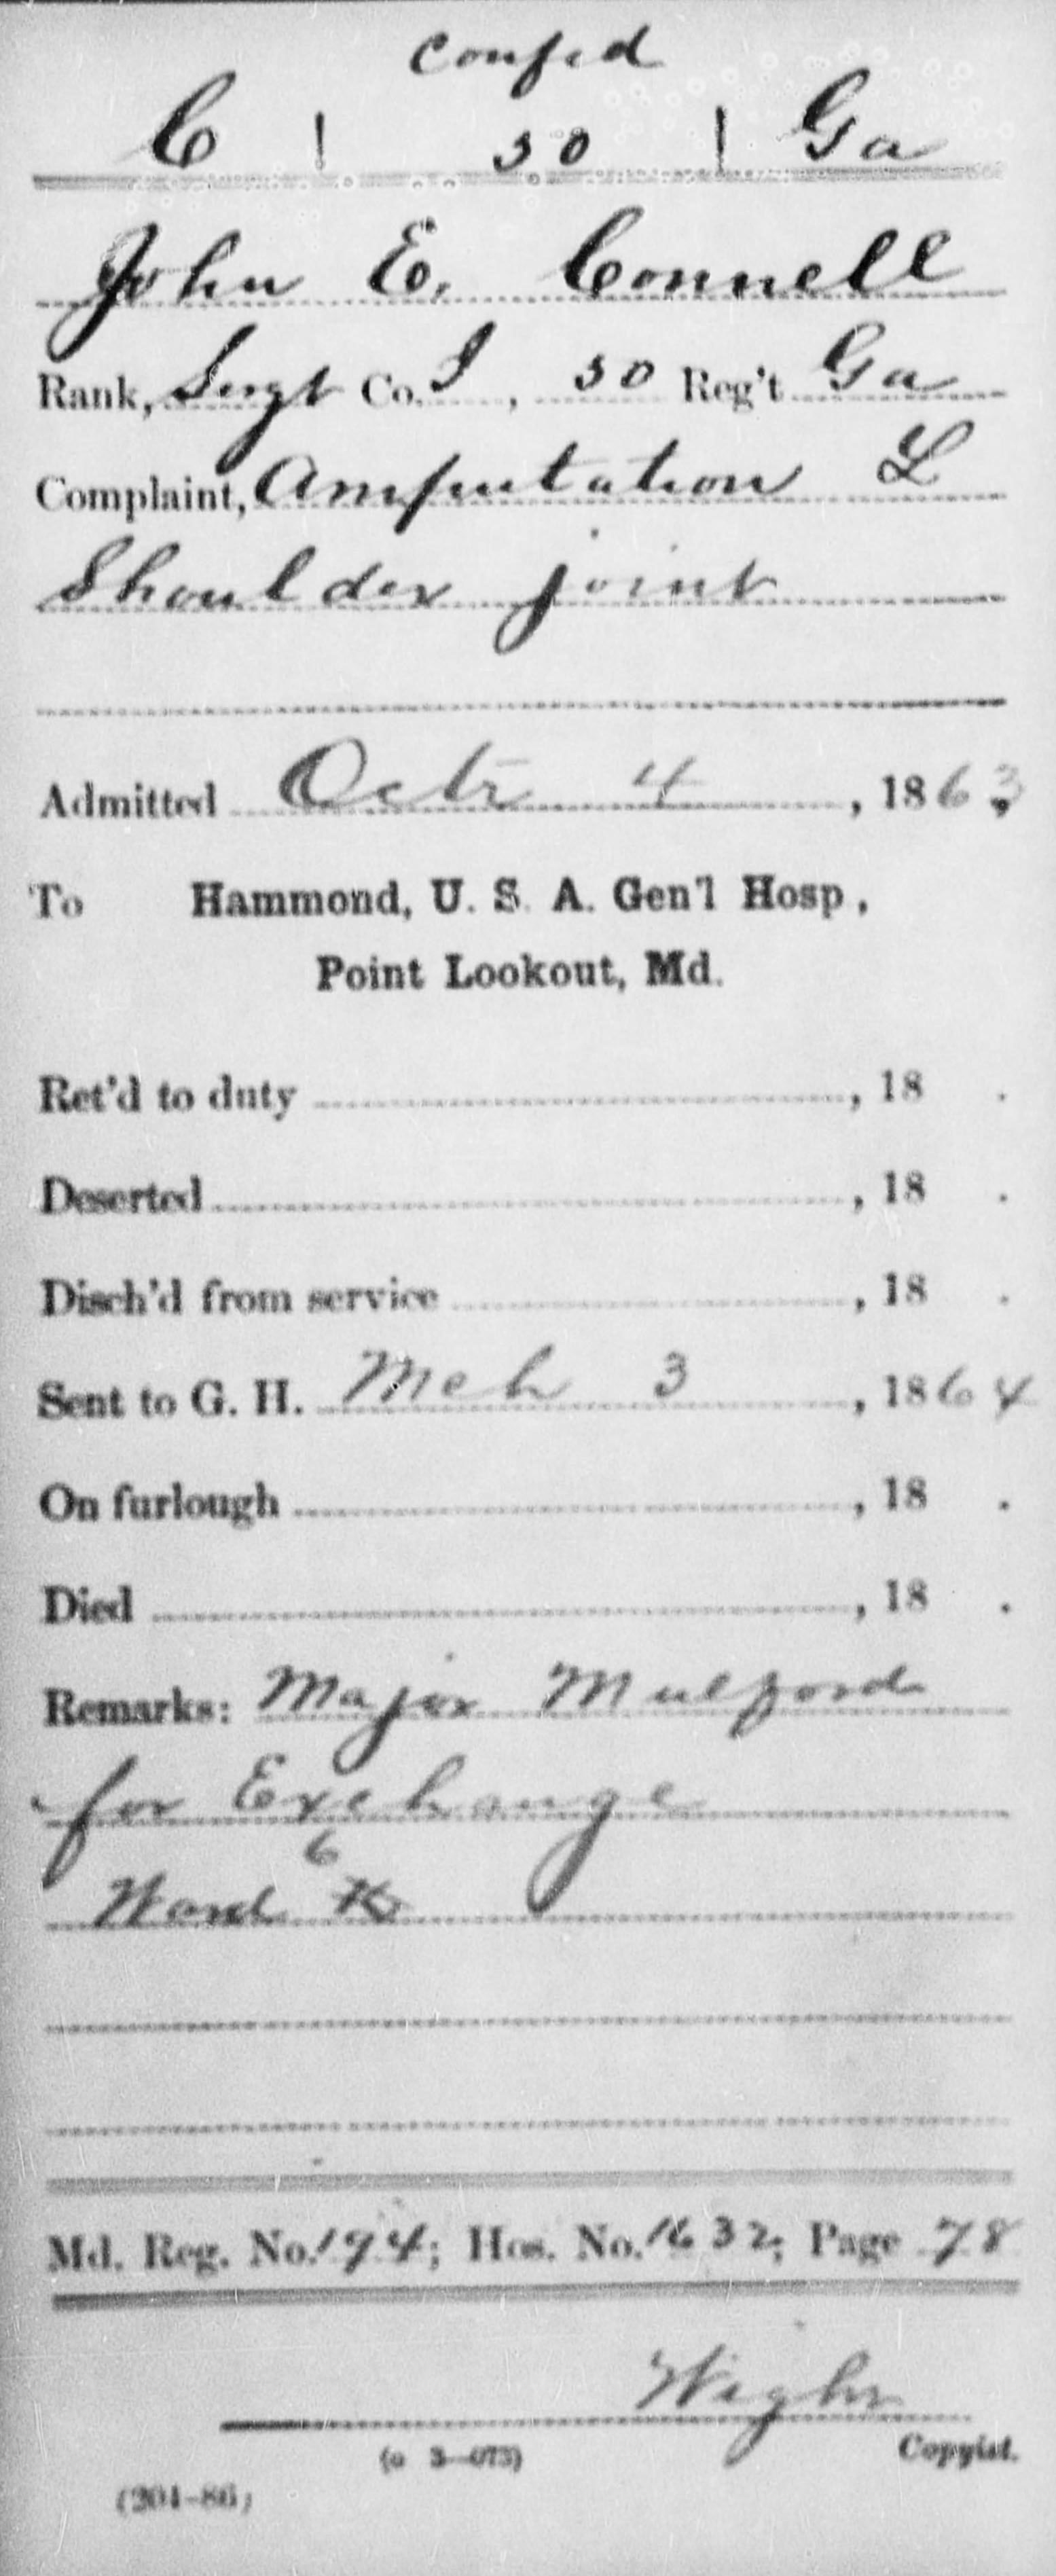 Confed
C | 50 | Ga
John E. Connell
Rank, Sergt Co. I, 50 Reg't Ga
Complaint, Amputation L
Shoulder joint
Admitted Octr 4, 1863
To Hammond, U. S. A. Gen'l Hosp.,
Point Lookout, Md.
Ret'd to duty , 18 .
Deserted , 18 .
Disch'd from service , 18 .
Sent to G. H. Mch 3, 1864
On furlough , 18 .
Died , 18 .
Remarks: Major Mulford
for Exchange
6
Ward
Md. Reg. No. 194; Hos. No. 1632; Page 78
Copyist.
(204-86)